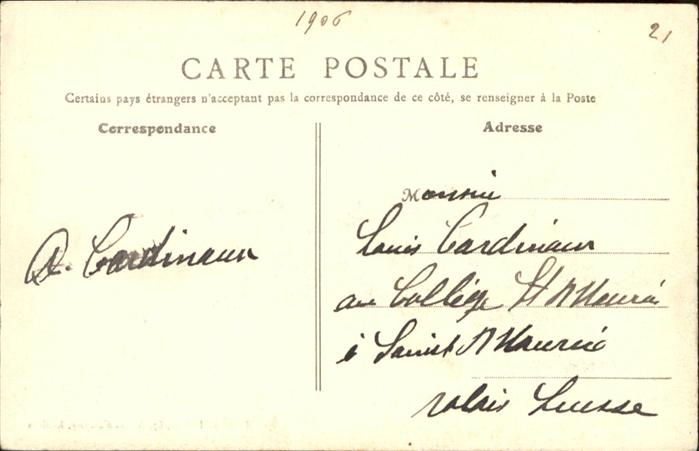 1906
21
CARTE POSTALE
Certains pays étrangers n'acceptant pas la correspondance de ce côté, se renseigner à la Poste
Correspondance
Adresse
A. Cardinaux
Monsieur
Louis Cardinaux
au Collège St Maurice
à Saint Maurice
Valais Suisse